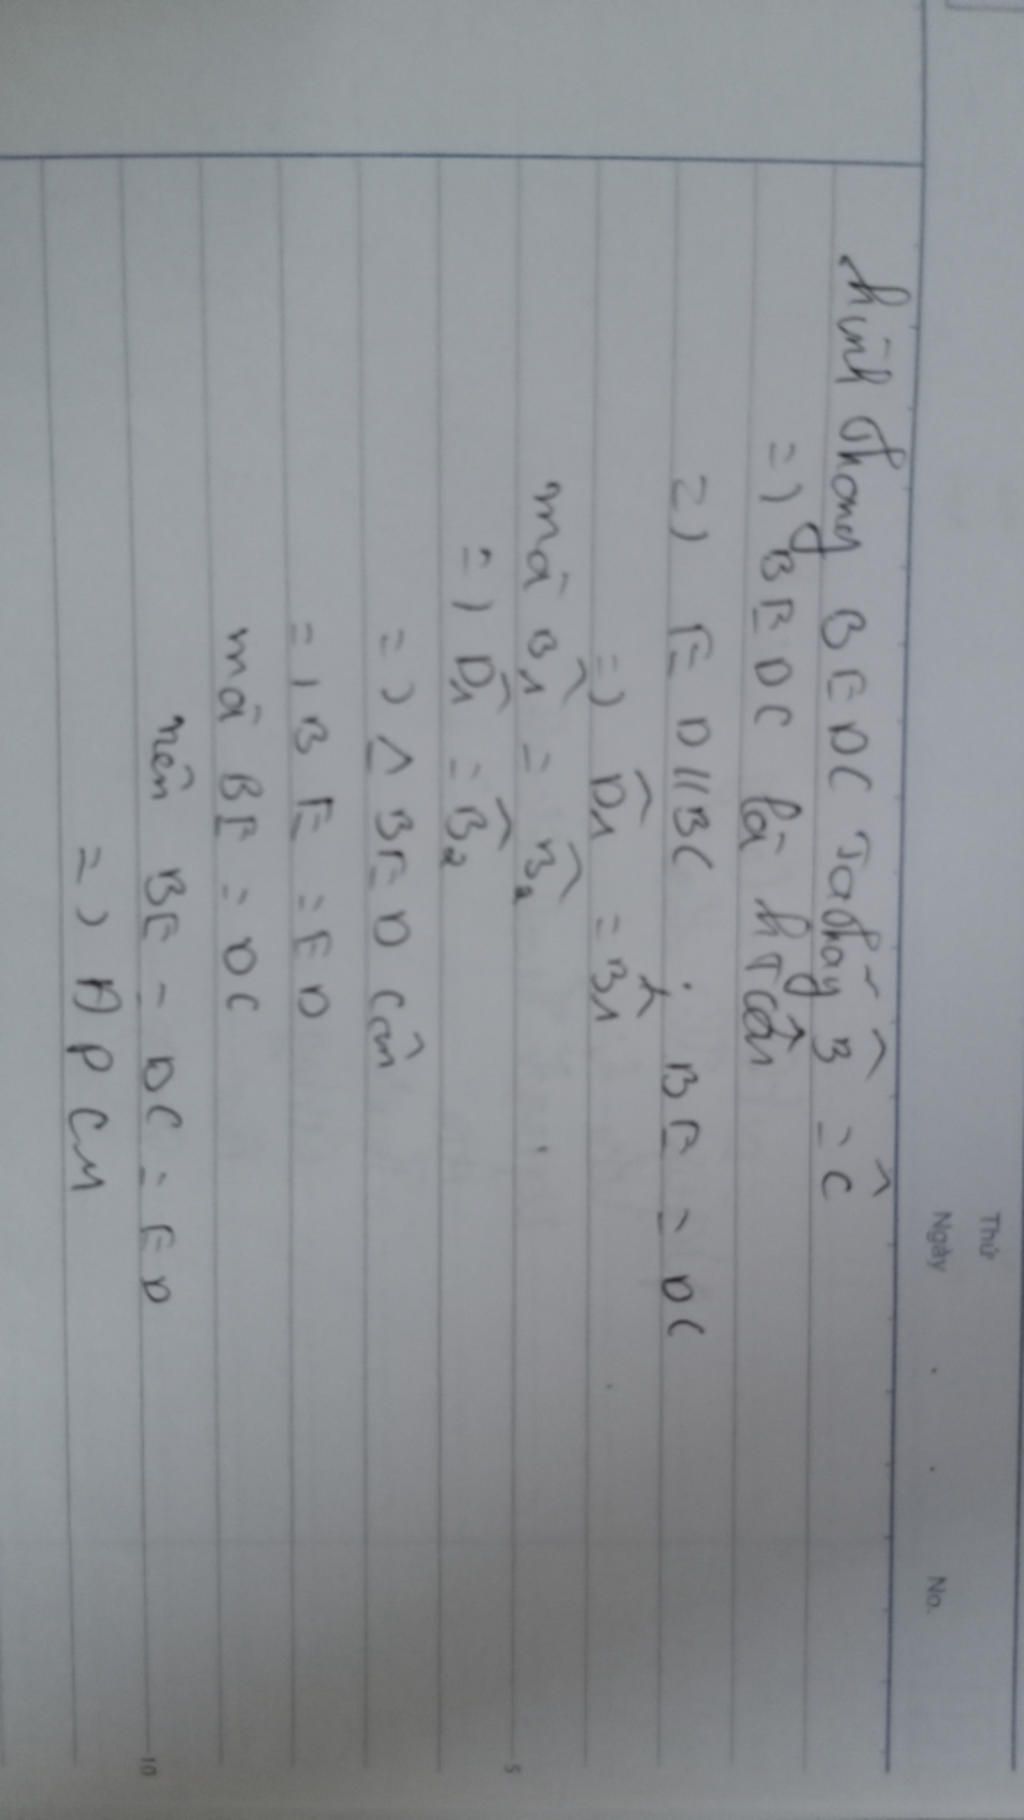 Thứ
Ngày . . No.
hình thang BEDC Ta thấy B̂ = Ĉ
=) BEDC là hTcân
=) ED//BC ; BE = DC
=) D̂1 = B̂1
mà B̂1 = B̂2
=) D̂1 = B̂2
=) Δ BED cân
=) BE = ED
mà BE = DC
nên BE = DC = ED
=) ĐPCM
5
10